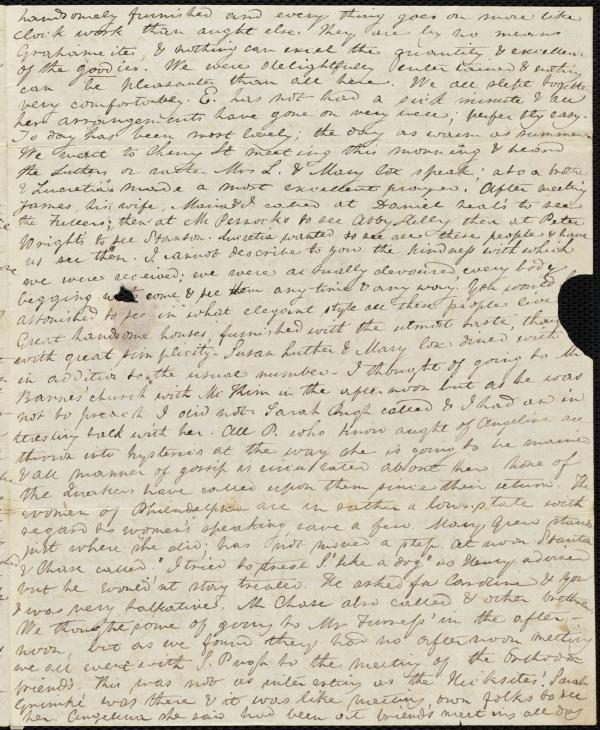 handsomely furnished and every thing goes on more like
clock work than aught else. They are by no means
Grahamites, & nothing can excel the quantity & excellence
of the goodies. We were delightfully entertained & nothing
can be pleasanter than all here. We all slept together
very comfortably. E. has not had a sick minute & all
her arrangements have gone on very well; perfectly easy.
To day has been most lovely; the day as warm as summer.
We went to Cherry St meeting this morning & heard
the Luthers or rather Mrs L. & Mary Cox speak; also a brother
& Lucretia made a most excellent prayer. After meeting
James, his wife, Maria & I called at Daniel Neal's to see
the Fullers; then at Mr Pennocks to see Abby Kelly then at Peter
Wrights to see Stanton. Lucretia wanted to see all these people & have
us see them. I cannot describe to you the kindness with which
we were received; we were actually devoured, every body
begging us to come & see them any time & any way. You would be
astonished to see in what elegant style all these people live
Great handsome houses, furnished with the utmost taste, though
with great simplicity. Susan Luther & Mary Cox dined with us
in addition to the usual number. I thought of going to Mr
Barnes' church with Mr Thim in the after noon but as he was
not to preach I did not. Sarah Pugh called & I had an in
teresting talk with her. All P. who know aught of Angelina are
thrown into hysterics at the way she is going to be married
& all manner of gossip is circulated about her. None of
the Quakers have called upon them since their return. The
women of Philadelphia are in rather a low state with
regard to women's speaking save a few. Mary Grew stands
just where she did; has not moved a step. At noon Stanton
& Chase called. "I tried to praise S. like a dog" as Henry advised
but he would'nt stay treated. He asked for Caroline & you
& was very talkative. Mr Chase also called & other brethren
We thought some of going to Mr Furness' in the after-
noon, but as we found they had no afternoon meeting
we all went with S. Pugh to the meeting of the Orthodox
friends. This was not as interesting as the Hicksites! Sarah
Grimké was there & it was like meeting own folks to see
her. Angelina she said had been at friends meetings all day